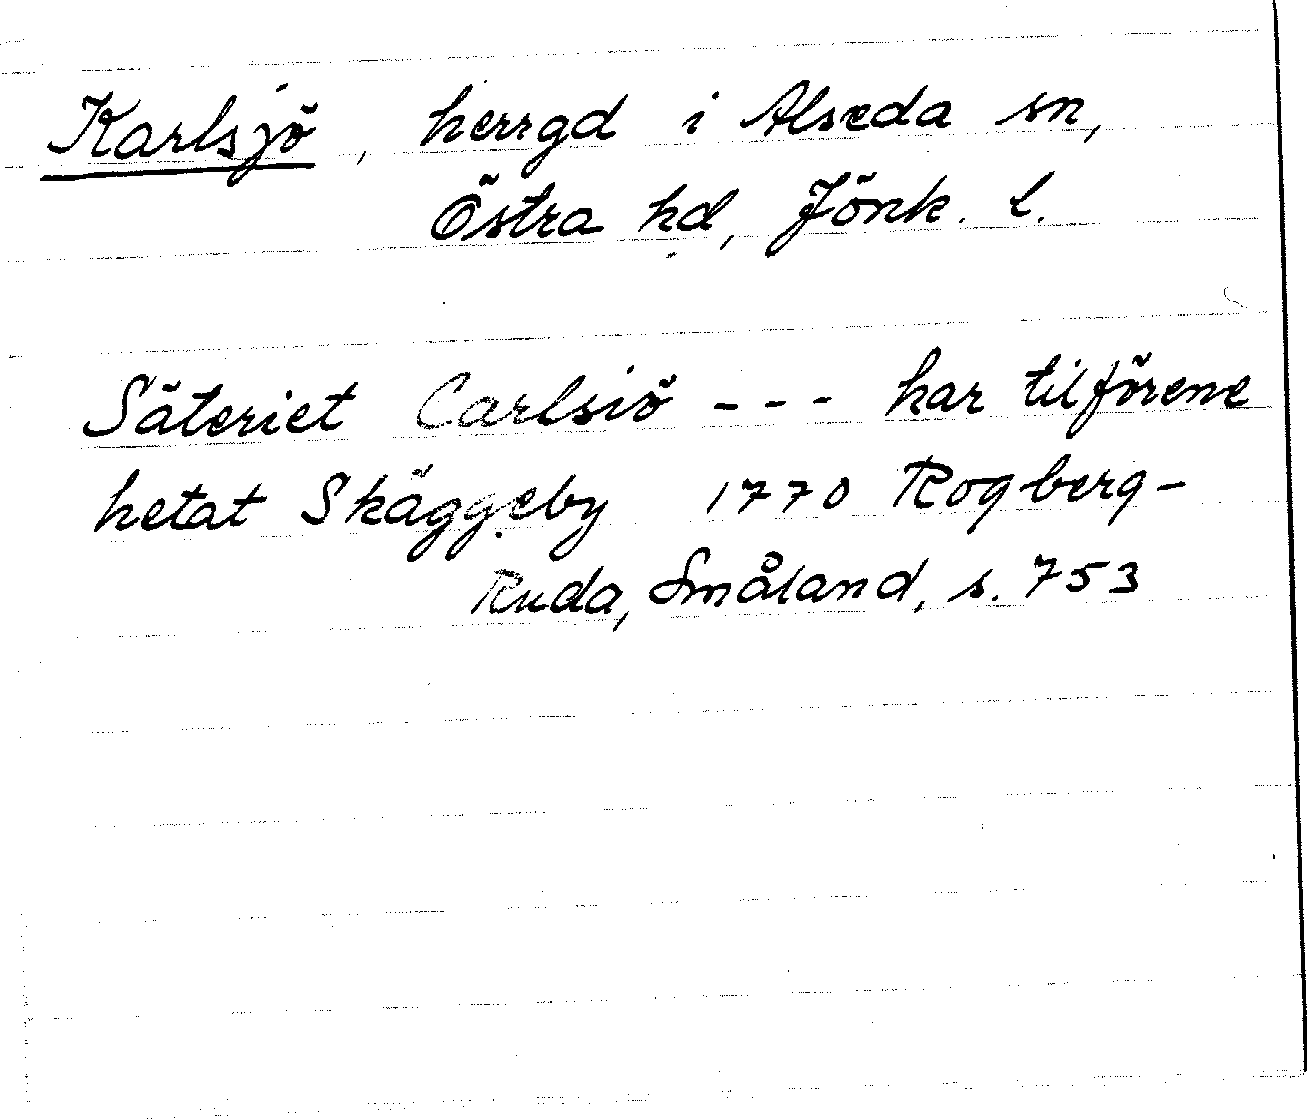 Karlsjö, herrgd i Alseda sn,
Östra hd, Jönk. l.
Säteriet Carlsiö --- har tilförene
hetat Skäggeby 1770 Rogberg-
Ruda, Småland, s. 753